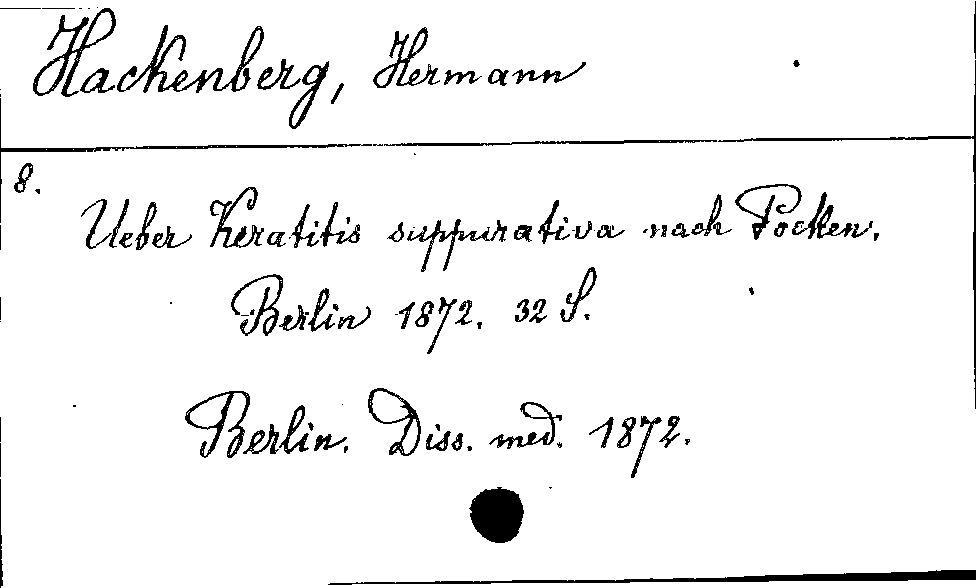 Hackenberg, Hermann
8.
Ueber Keratitis suppurativa nach Pocken.
Berlin 1872. 32 S.
Berlin. Diss. med. 1872.